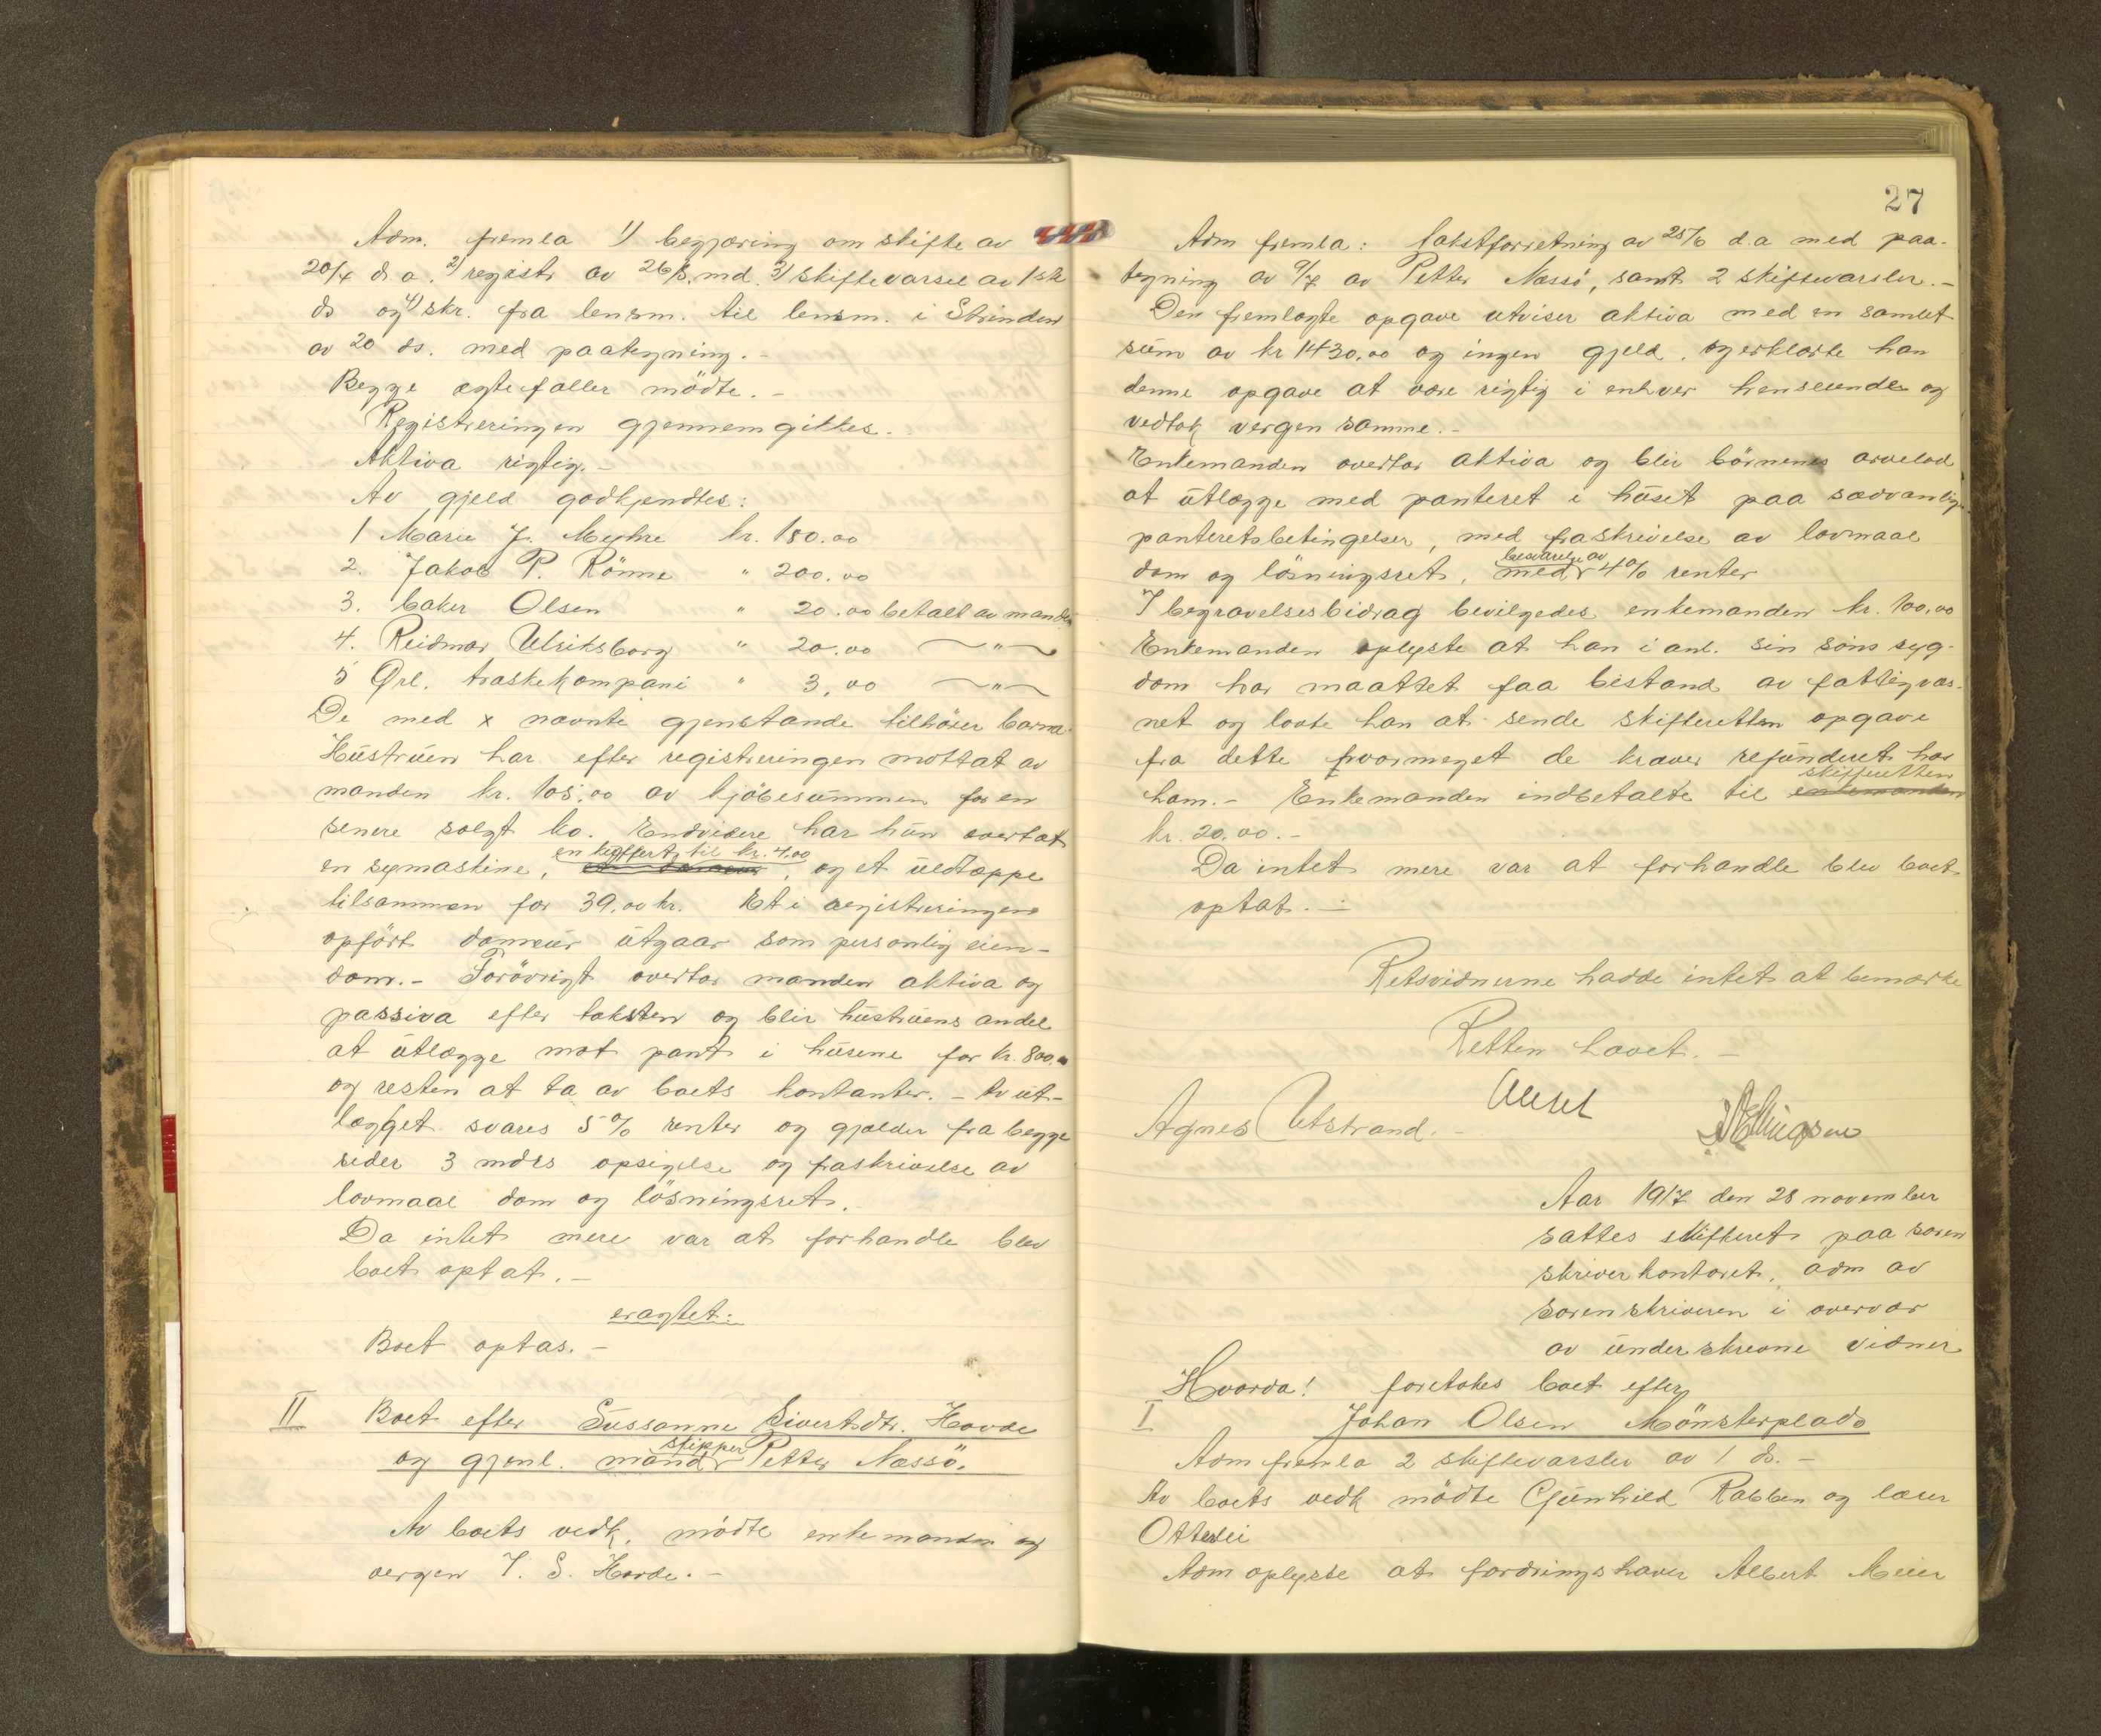 Adm. fremla 1) begjæring om skifte av
20/4 d. a. 2) registr av 26/8. md. 3) skiftevarsel av 1ste
ds og 4) skr. fra lensm. til lensm. i Strinden
av 20 ds. med paategning. -
Begge ægtefæller mödte. -
Registreringen gjennemgikkes.
Aktiva rigtig. -
Av gjeld godkjendtes:
1 Marie J. Myhre kr. 180.00
2. Jakob P. Rönne " 200.00
3. baker Olsen " 20.00 betalt av manden
4. Reidmar Ulriksborg " 20.00 — " —
5 Ørl. træskekompani " 3,00 — " —
De med x nævnte gjenstande tilhörer barna.
Hustruen har efter registreringen mottat av
manden kr. 105,00 av kjöbesummen for en
senere solgt ko. Endvidere har hun overtat
en symaskine, en kuffert til kr. 4.00, og et uldtæppe
tilsammen for 39,00 kr. Et i registreringen
opfört dameur utgaar som personlig eien-
dom. - Forövrigt overtar manden aktiva og
passiva efter taksten og blir hustruens andel
at utlægge mot pant i husene for kr. 800.00
og resten at ta av boets kontanter. - Av ut-
lægget svares 5 % renter og gjælder fra begge
sider 3 mdrs opsigelse og fraskrivelse av
lovmaal dom og lösningsret.
Da intet mere var at forhandle blev
boet optat. -
eragtet:
Boet optas. -
II Boet efter Sussanne Sivertsdtr. Hovde
og gjenl. mand skipper Petter Næssö.
Av boets vedk. mödte enkemanden og
vergen J. S. Hovde. -
27
Adm fremla: takstforretning av 25/6 d.a med paa-
tegning av 9/7 av Petter Næssö, samt 2 skiftevarsler. -
Den fremlagte opgave utviser aktiva med en samlet
sum av kr 1430,00 og ingen gjeld, og erklærte han
denne opgave at være rigtig i enhver henseende og
vedtok vergen samme. -
Enkemanden overtar aktiva og blir börnenes arvelod
at utlægge med panteret i huset paa sædvanlige
panteretsbetingelser, med fraskrivelse av lovmaal
dom og lösningsret, med besvarelse av 4 % renter
I begravelsesbidrag bevilgedes enkemanden kr. 100,00
Enkemanden oplyste at han i anl. sin söns syg-
dom har maattet faa bistand av fattigvæs-
net og lovte han at sende skifteretten opgave
fra dette hvormeget de kræver refunderet hos
ham. - Enkemanden indbetalte til enkemanden skifteretten
kr. 20.00. -
Da intet mere var at forhandle blev boet
optat. -
Retsvidnerne hadde intet at bemærke
Retten hævet. -
Agnes Utstrand. -
Ellingsen
Aar 1917 den 28 november
sattes skifteret paa soren
skriverkontoret, adm av
sorenskriveren i overvær
av underskrevne vidner
Hvorda! foretokes boet efter
I Johan Olsen Mönsterplads
Adm fremla 2 skiftevarsler av 1 ds. -
Av boets vedk mödte Gunhild Rabben og lærer
Ottersei
Adm oplyste at fordringshaver Albert Meier